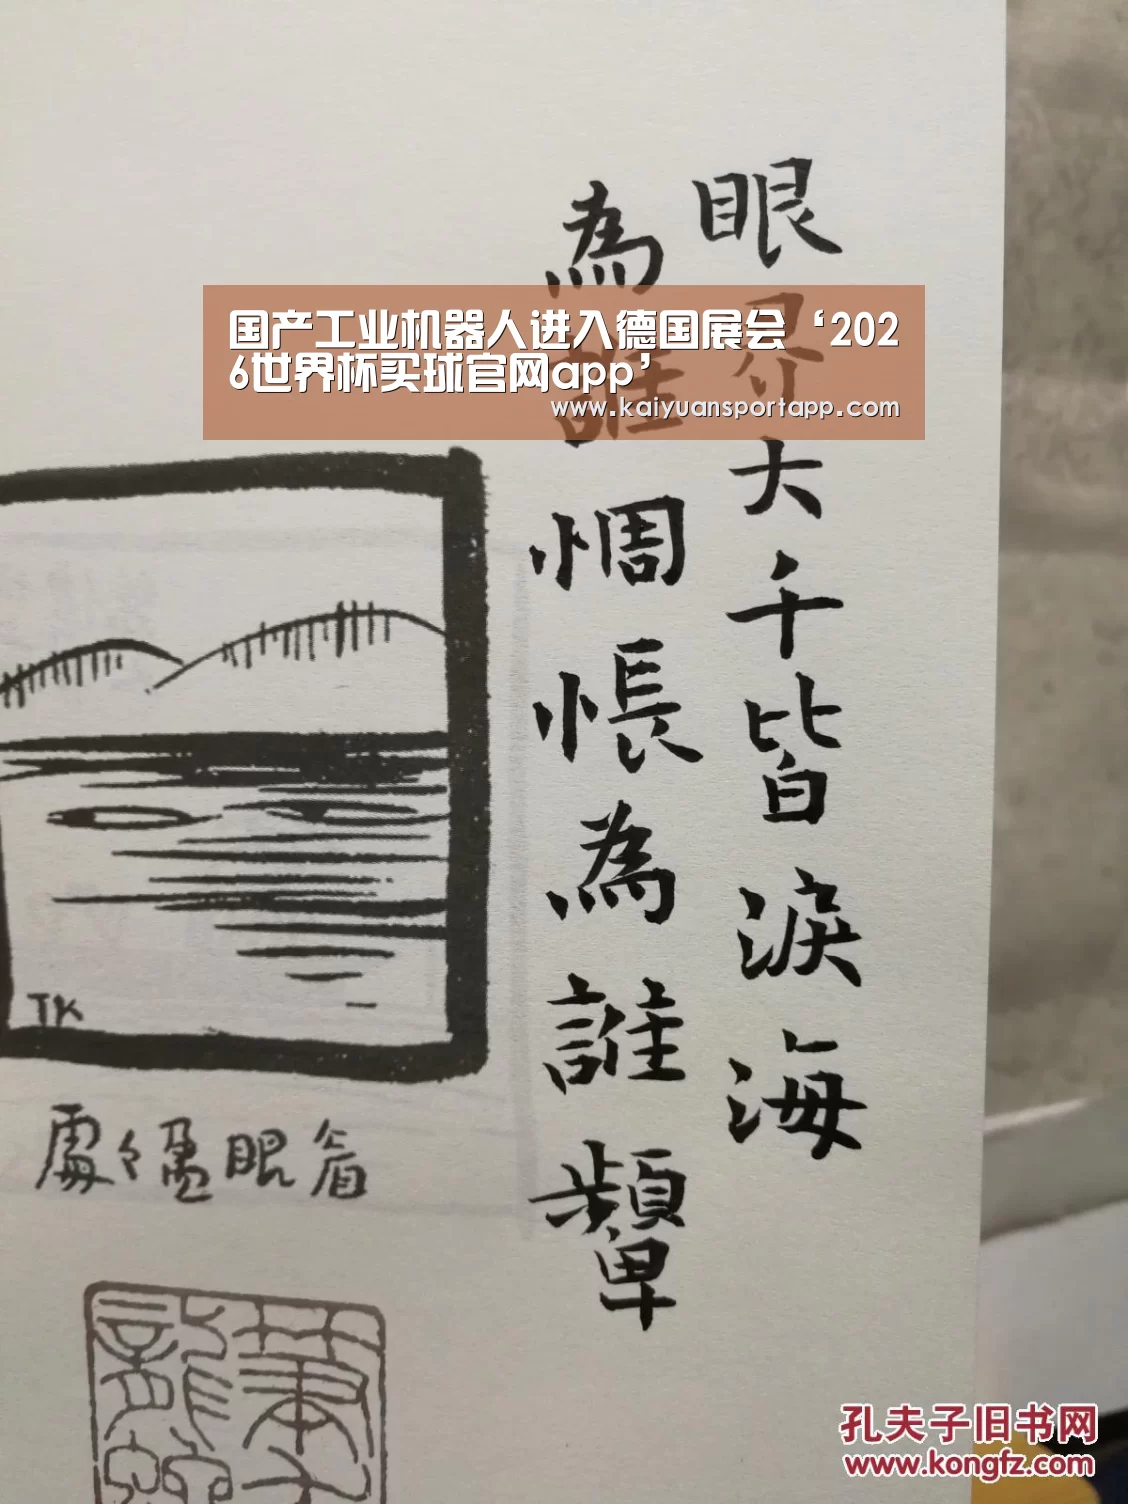 国产工业机器人进入德国展会‘202
6世界杯买球官网app’
www.kaiyuansportapp.com
眼界大千皆淚海
為誰惆悵為誰顰
TK
處々溫眼看
孔夫子旧书网
www.kongfz.com